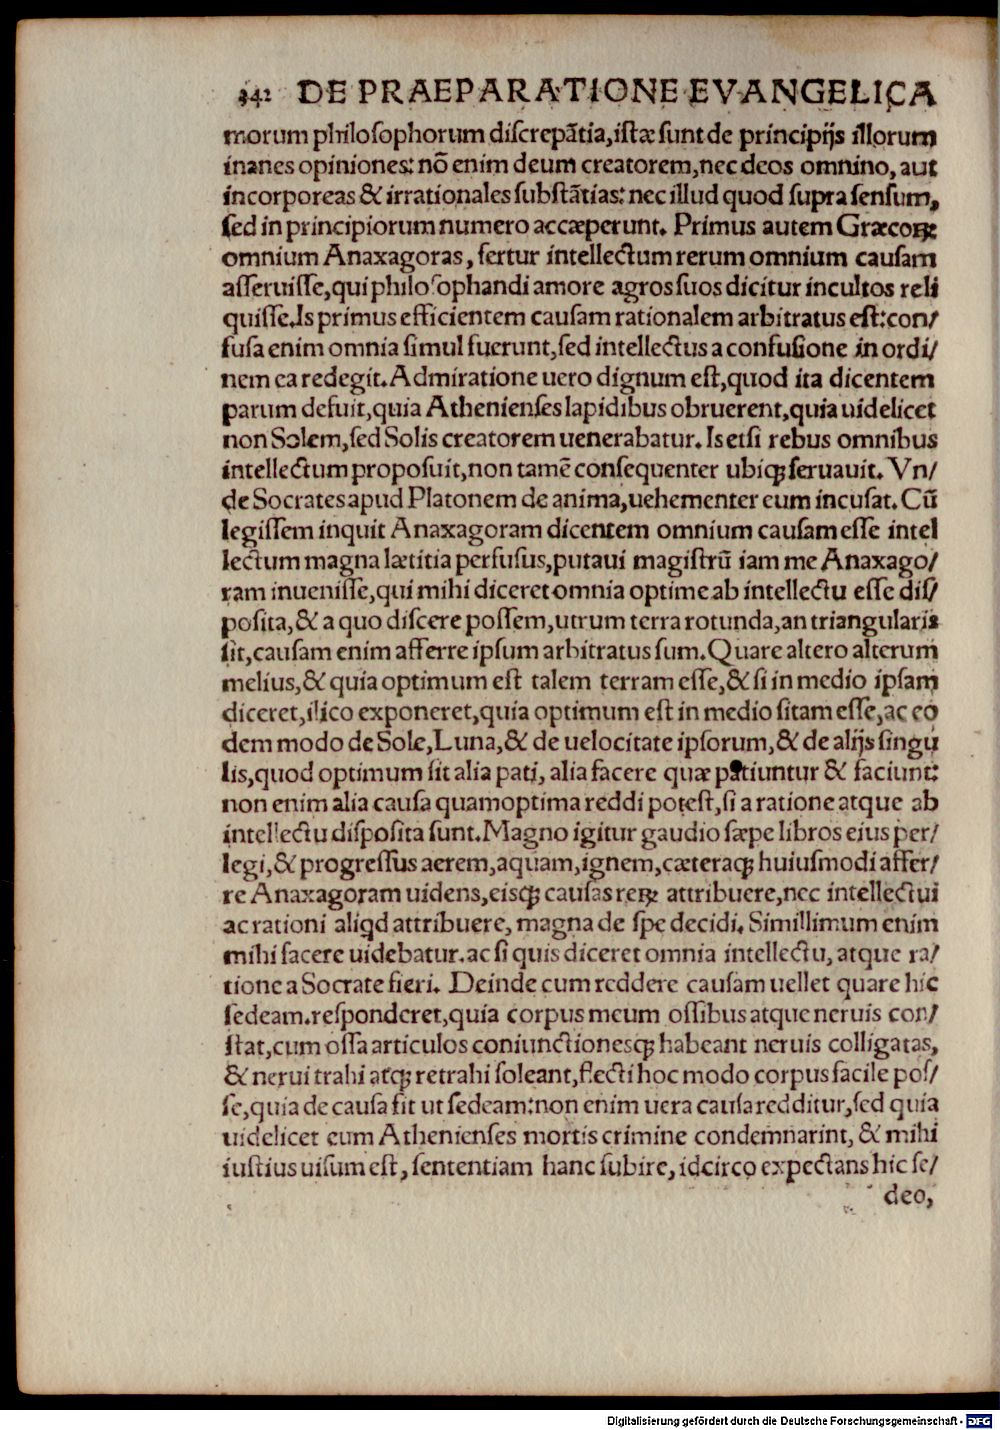 342 DE PRAEPARATIONE EVANGELICA
morum philoſophorum diſcrepãtia,iſtæ ſunt de principijs illorum
inanes opiniones: nõ enim deum creatorem,nec deos omnino, aut
incorporeas & irrationales ſubſtãtias: nec illud quod ſupra ſenſum,
ſed in principiorum numero accæperunt. Primus autem Græcoꝝ
omnium Anaxagoras, fertur intellectum rerum omnium cauſam
aſſeruiſſe,qui philoſophandi amore agros ſuos dicitur incultos reli
quiſſe.Is primus efficientem cauſam rationalem arbitratus eſt:con/
fuſa enim omnia ſimul fuerunt,ſed intellectus a confuſione in ordi/
nem ea redegit.Admiratione uero dignum eſt,quod ita dicentem
parum defuit,quia Athenienſes lapidibus obruerent,quia uidelicet
non Solem,ſed Solis creatorem uenerabatur. Is etſi rebus omnibus
intellectum propoſuit,non tamẽ conſequenter ubiqꝫ ſeruauit. Vn/
de Socrates apud Platonem de anima,uehementer eum incuſat. Cũ
legiſſem inquit Anaxagoram dicentem omnium cauſam eſſe intel
lectum magna lætitia perfuſus,putaui magiſtrũ iam me Anaxago/
ram inueniſſe,qui mihi diceret omnia optime ab intellectu eſſe diſ/
poſita,& a quo diſcere poſſem,utrum terra rotunda,an triangularis
ſit,cauſam enim afferre ipſum arbitratus ſum.Quare altero alterum
melius,& quia optimum eſt talem terram eſſe,& ſi in medio ipſam
diceret,ilico exponeret,quia optimum eſt in medio ſitam eſſe,ac eo
dem modo de Sole,Luna,& de uelocitate ipſorum,& de alijs ſingu
lis,quod optimum ſit alia pati, alia facere quæ patiuntur & faciunt:
non enim alia cauſa quamoptima reddi poteſt,ſi a ratione atque ab
intellectu diſpoſita ſunt.Magno igitur gaudio ſæpe libros eius per/
legi,& progreſſus aerem,aquam,ignem,cæteraqꝫ huiuſmodi affer/
re Anaxagoram uidens,eiſqꝫ cauſas reꝝ attribuere,nec intellectui
ac rationi aliqd attribuere, magna de ſpe decidi. Simillimum enim
mihi facere uidebatur.ac ſi quis diceret omnia intellectu, atque ra/
tione a Socrate fieri. Deinde cum reddere cauſam uellet quare hic
ſedeam.reſponderet,quia corpus meum oſſibus atque neruis con/
ſtat,cum oſſa articulos coniunctioneſqꝫ habeant neruis colligatas,
& nerui trahi atqꝫ retrahi ſoleant,flecti hoc modo corpus facile poſ/
ſe,quia de cauſa fit ut ſedeam:non enim uera cauſa redditur,ſed quia
uidelicet eum Athenienſes mortis crimine condemnarint, & mihi
iuſtius uiſum eſt, ſententiam hanc ſubire, idcirco expectans hic ſe/
deo,
Digitalisierung gefördert durch die Deutsche Forschungsgemeinschaft - DFG